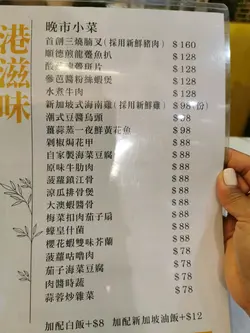 港滋味
晚市小菜
首創三燒腩叉(採用新鮮豬肉) $160
順德煎龍躉魚扒 $128
斑片 $128
參芭醬粉絲蝦煲 $128
水煮牛肉 $128
新加坡式海南雞(採用新鮮雞) $98
潮式豆醬烏頭 $98
薑蒜蒸一夜鮮黃花魚 $98
剁椒焗花甲 $88
自家製海菜豆腐 $88
原味牛肋肉 $88
菠蘿鎮江骨 $88
涼瓜排骨煲 $88
大澳蝦醬骨 $88
梅菜扣肉茄子扇 $88
蠔皇什菌 $88
櫻花蝦雙味芥蘭 $78
菠蘿咕嚕肉 $78
茄子海菜豆腐 $78
肉醬時蔬 $78
蒜蓉炒雜菜 $78
加配白飯+$8 加配新加坡油飯+$12